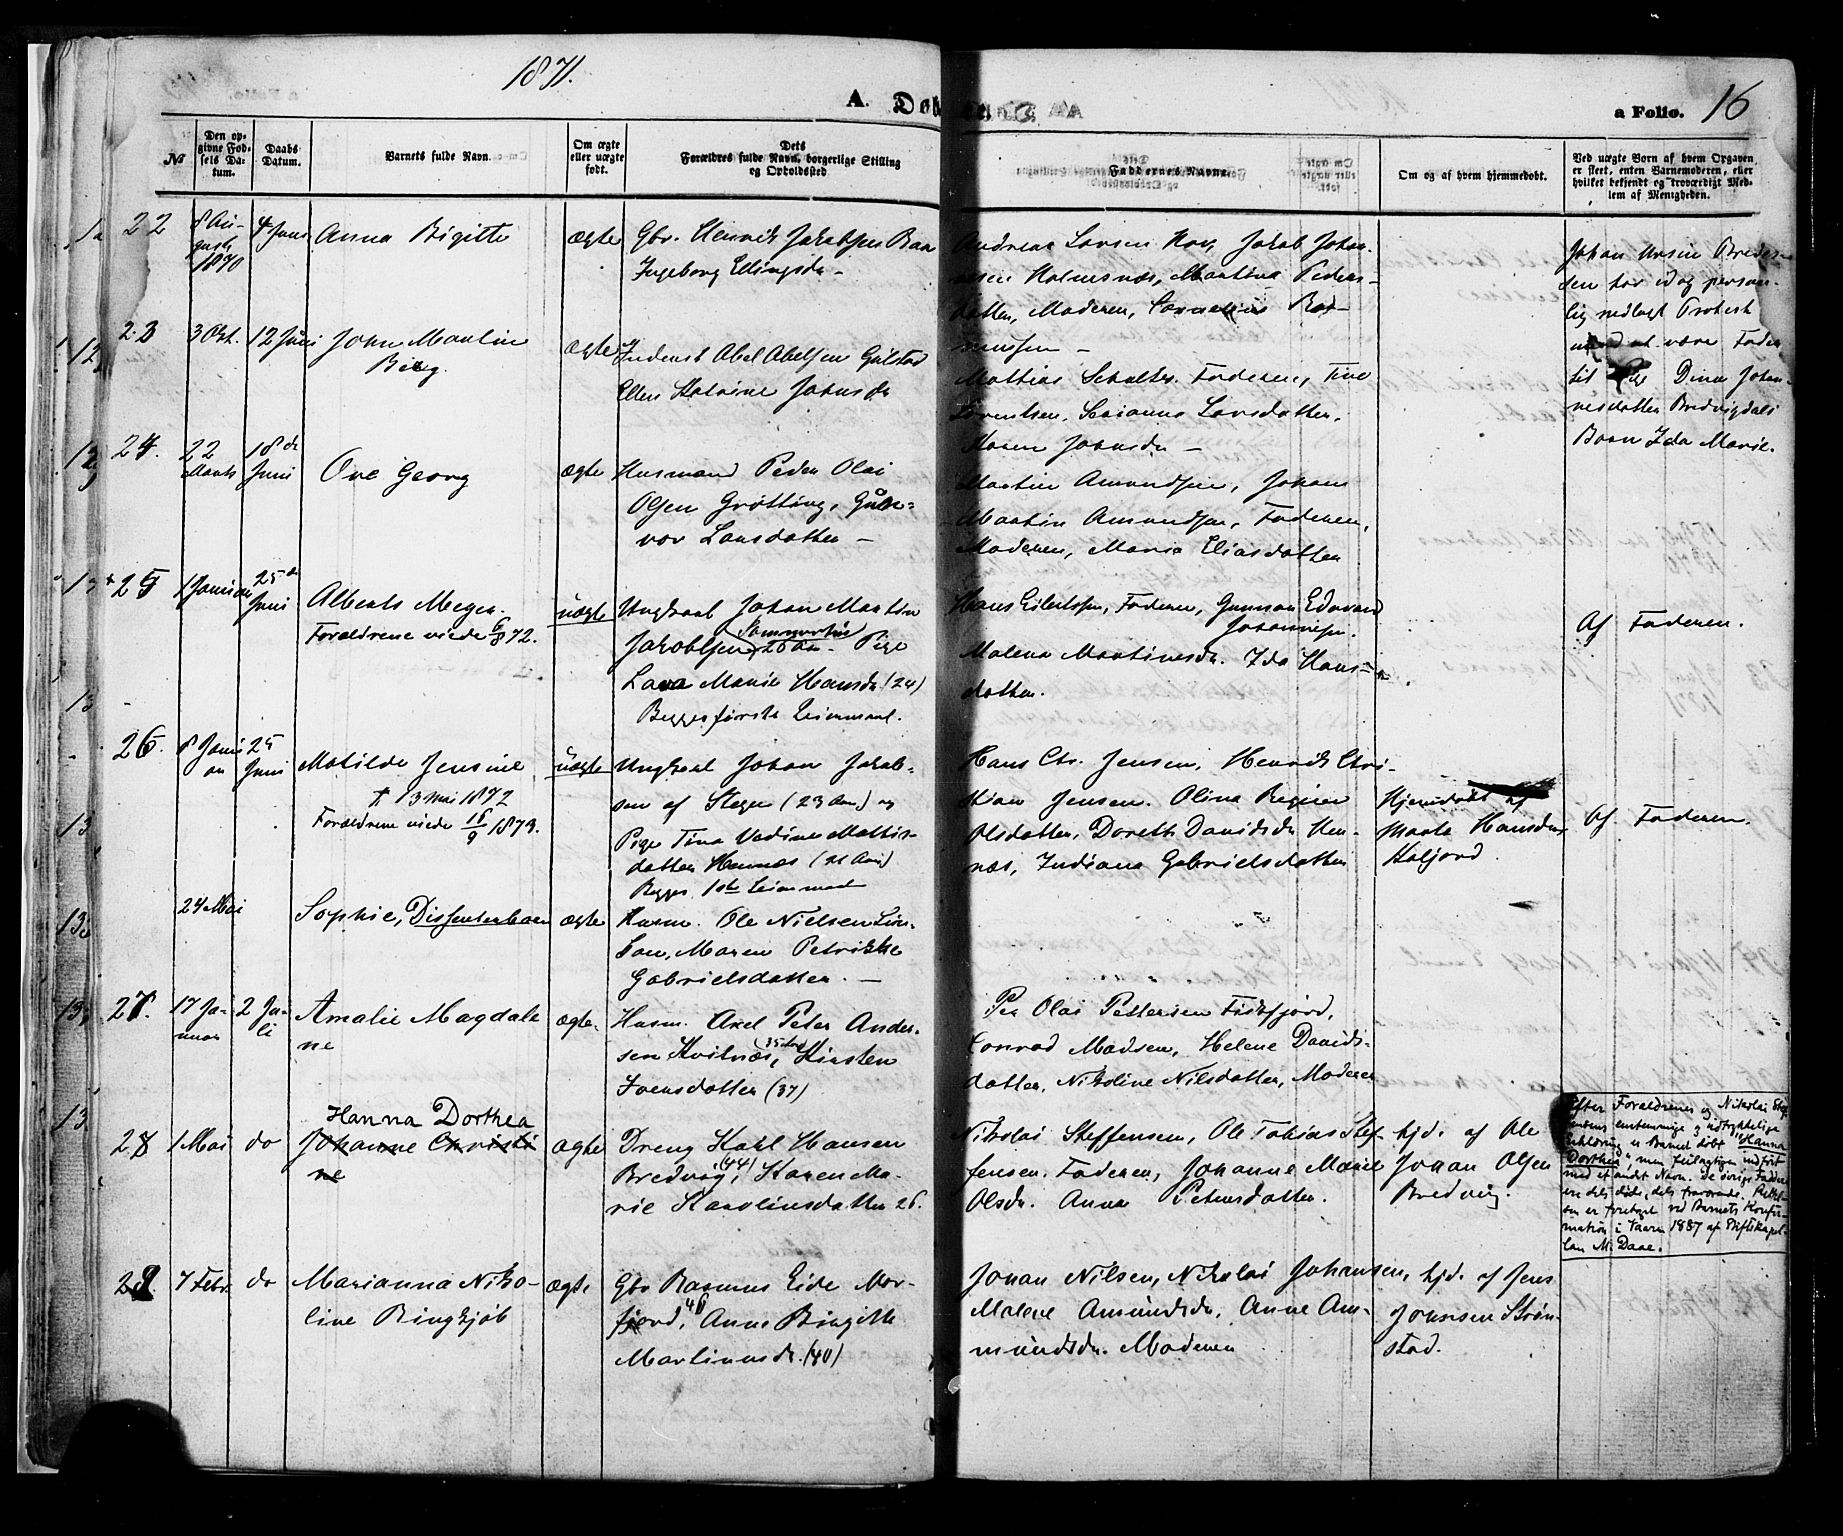 1871.
A. Dob
a Folio. 16
№
Den op-
givne Fød-
sels Da-
tum.
Daabs
Datum.
Barnets fulde Navn.
Om ægte
eller uægte
født.
Dets
Forældres fulde Navn, borgerlige Stilling
og Opholdssted
Faddernes Navne
Om og af hvem hjemmedøbt.
Ved uægte Børn af hvem Opgaven
er skeet, enten Barnemoderen, eller
hvilket bekjendt og troværdigt Med-
lem af Menigheden.
22
8 Au-
gust
1870
4 Juni
Anna Birgitte
ægte
Gbr. Henrik Jakobsen
Ingeborg Ellingsdr –
Andreas Larsen Jakob Johan-
nesen Holmsnæs, Martina Peders-
datter, Moderen, Cornelius Ras-
mussen –
Johan Ursin Breder-
sen har idag person-
lig nedlagt Protest
mod at være Fader
til Dina Johan-
nesdatter Bredvigdals
Barn Ida Marie.
23
3 Okt.
12 Juni
John Martin
Berg.
ægte
Inderst Abel Abelsen Gulstad
Ellen Katrine Johnsdr
Mathias Schultes. Faderen,
Lorentsen, Larsdatter,
Karen Johnsdr –
24.
22
Marts
18de
Juni
Ove Georg
ægte
Husmand Peder Olai
Olsen Grøtting, Gun-
vor Larsdatter –
Martin Amundsen, Johan
Martin Amundsen, Faderen,
Moderen, Maria Eliasdatter
25
1 Januar
25de
Juni
Alberts Meyer.
Forældrene viede 6/8 72.
uægte
Ungkarl Johan Martin
Jakobsen 26 Aar. Pige
Lava Marie Hansdr (24)
Begges første Leiermaal.
Hans Eilertsen, Faderen, Gunnar Edvard
Johannesen.
Malena Martinesdr. Ida Hans-
datter.
Af Faderen.
26.
8 Janu
ar
25
Juni
Matilde Jensine
† 13 Mai 1872
Forældrene viede 15/9 1873.
uægte
Ungkarl Johan Jakob-
sen af Steger (23 Aar) og
Pige Tina Mattis-
datter Hennæs (21 Aar)
Begges 1ste Leiermaal
Hans Chr. Jensen, Henrik Chri-
stian Jensen. Olina Regine
Olsdatter, Doreth Davidsdr Hen-
næs, Indiana Gabrielsdatter
Hjemdøbt af
Marta Hansdr
Kaljord
Af Faderen.
24 Mai
Sophie, Dissenterbarn
ægte
Husm. Ole Nielsen
Maren Petrikke
Gabrielsdatter. –
27.
17 Ja-
nuar
2 Ju-
li
Amalie Magdale
ne
ægte.
Husm. Axel Peter Ander-
sen Kvitnæs, (35 Aar) Kirsten
Joensdatter (37)
Per Olai Pettersen Fiskfjord,
Conrad Madsen, Helene Davids-
datter, Nikoline Nilsdatter, Moderen
28
1 Mai
do
Hanna Dorthea
Johanne Christi
ne
ægte
Dreng Karl Hansen
Bredvig, (44) Karen Ma-
rie Karolinsdatter 26.
Nikolai Steffensen, Ole Tobias Stef-
fensen. Faderen, Johanne Marie
Olsdr. Anna Petersdatter.
hjd. af Ole
Johan Olsen
Bredvig
Efter Forældrenes og Nikolai Stef
fensens enstemmige & udtrykkelige
Erklæring er Barnet døbt "Hanna
Dorthea", men feilagtigen indført
med et andet Navn. De øvrige Faddre
ere dels døde, dels fraværende. Rettel-
sen er foretaget ved Barnets Konfir-
mation i Vaaren 1887 af Stiftskapel-
lan M. Daae.
29.
7 Febr.
do
Marianna Niko-
line Ringkjøb
ægte
Gbr Rasmus Eide Mor-
fjord, 46 Anne Birgitte
Martinusdr. (40)
Johan Nilsen, Nikolai Johansen,
Malene Amundsdr, Anne Am-
mundsdr. Moderen
hjd. af Jens
Johnsen Strøm-
stad.